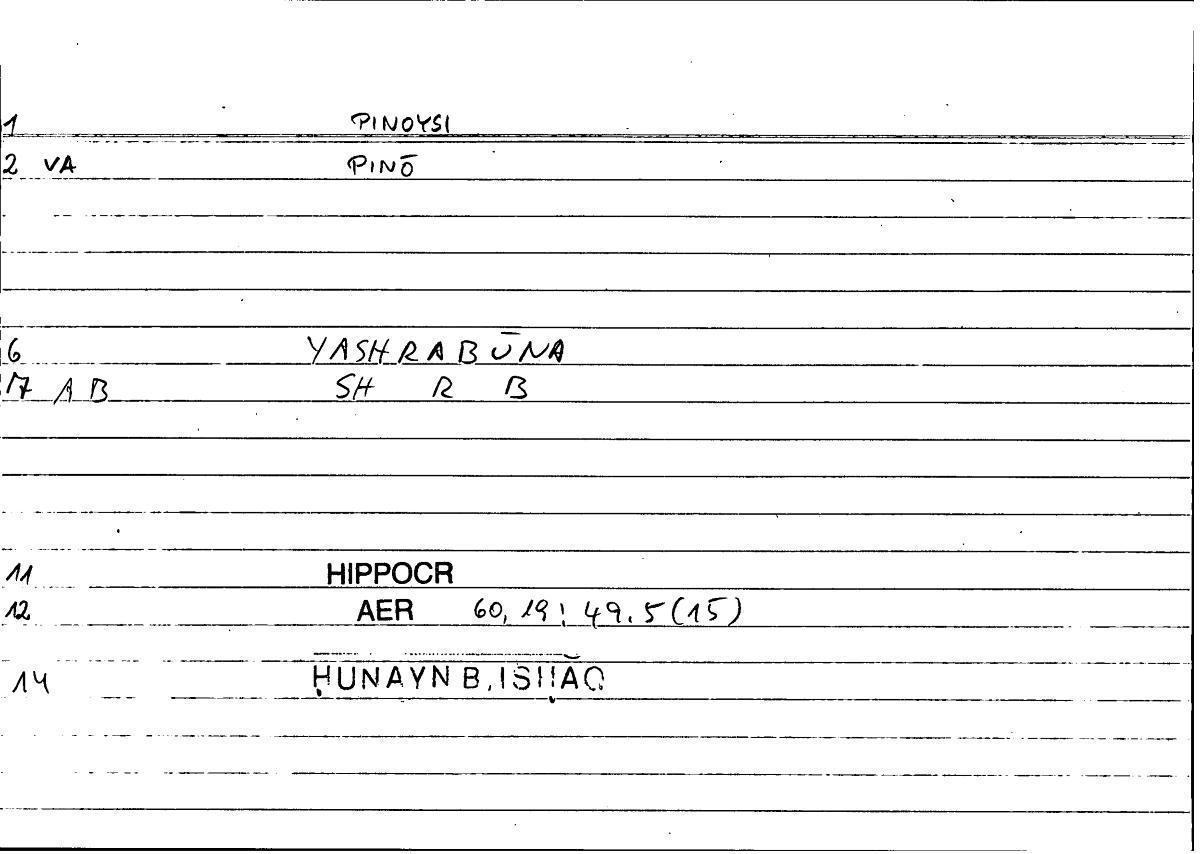 1 PINOYSI
2 VA PINŌ
6 YASHRABŪNA
17 AB SH R B
11 HIPPOCR
12 AER 60,19; 49.5(15)
14 ḤUNAYN B. ISḤĀQ